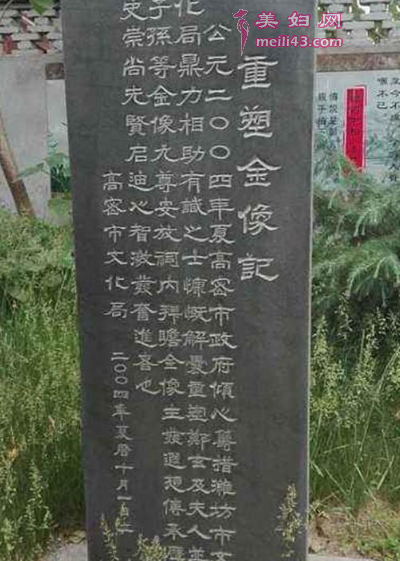 美妇网
meili43.com
重塑金像記
公元二〇〇四年夏高密市政府傾心籌措濰坊市文
化局鼎力相助有識之士慷慨解囊重塑鄭玄及夫人並
子孫等金像九尊安放祠内拜瞻金像生發遐想傳承歷
史崇尚先賢启迪心智激發奮進也
高密市文化局
二〇〇四年夏曆十月一